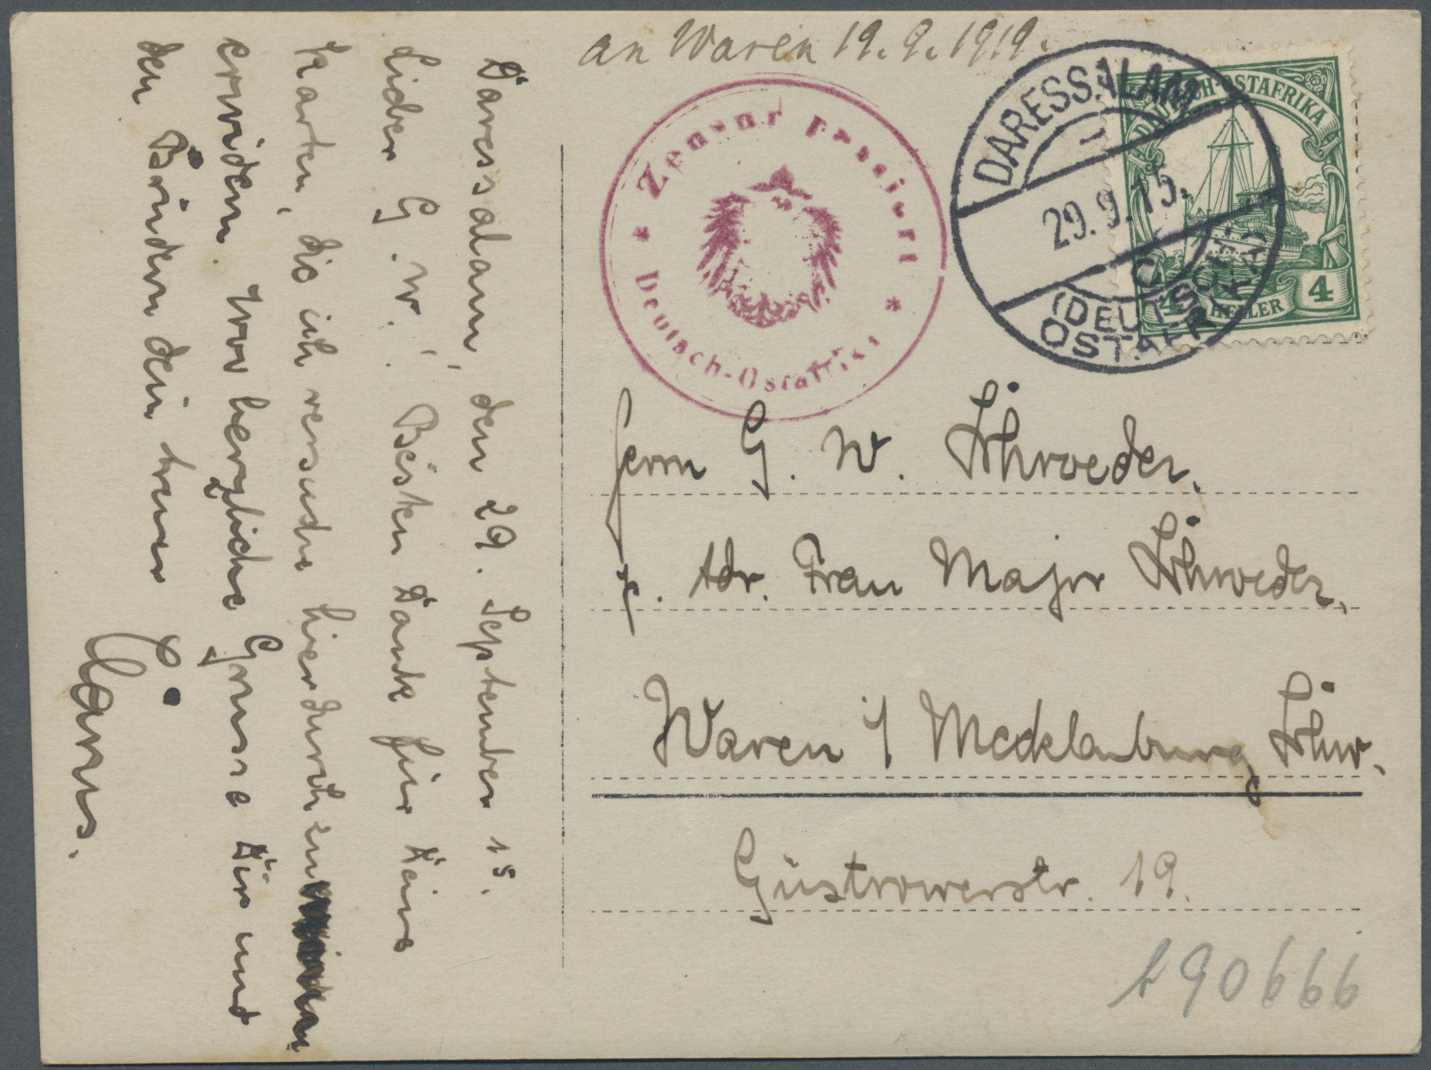 an Waren 19.9.1919.
* Zensur passiert *
Deutsch-Ostafrika
DARESSALAM
29.9.15.
C
(DEUTSCH-
OSTAFRIKA)
DEUTSCH-OSTAFRIKA
4 HELLER 4
Daressalam, den 29. September 15.
Lieber G. W.! Besten Dank für Deine
Karten, die ich versuche hierdurch zu
erwidern. Viele herzliche Grüsse Dir und
den Brüdern dein treuer
Hans.
Herrn G. W. Schroeder.
p. Adr. Frau Major Schroeder,
Waren i/ Mecklenburg Schw.
Güstrowerstr. 19.
490666